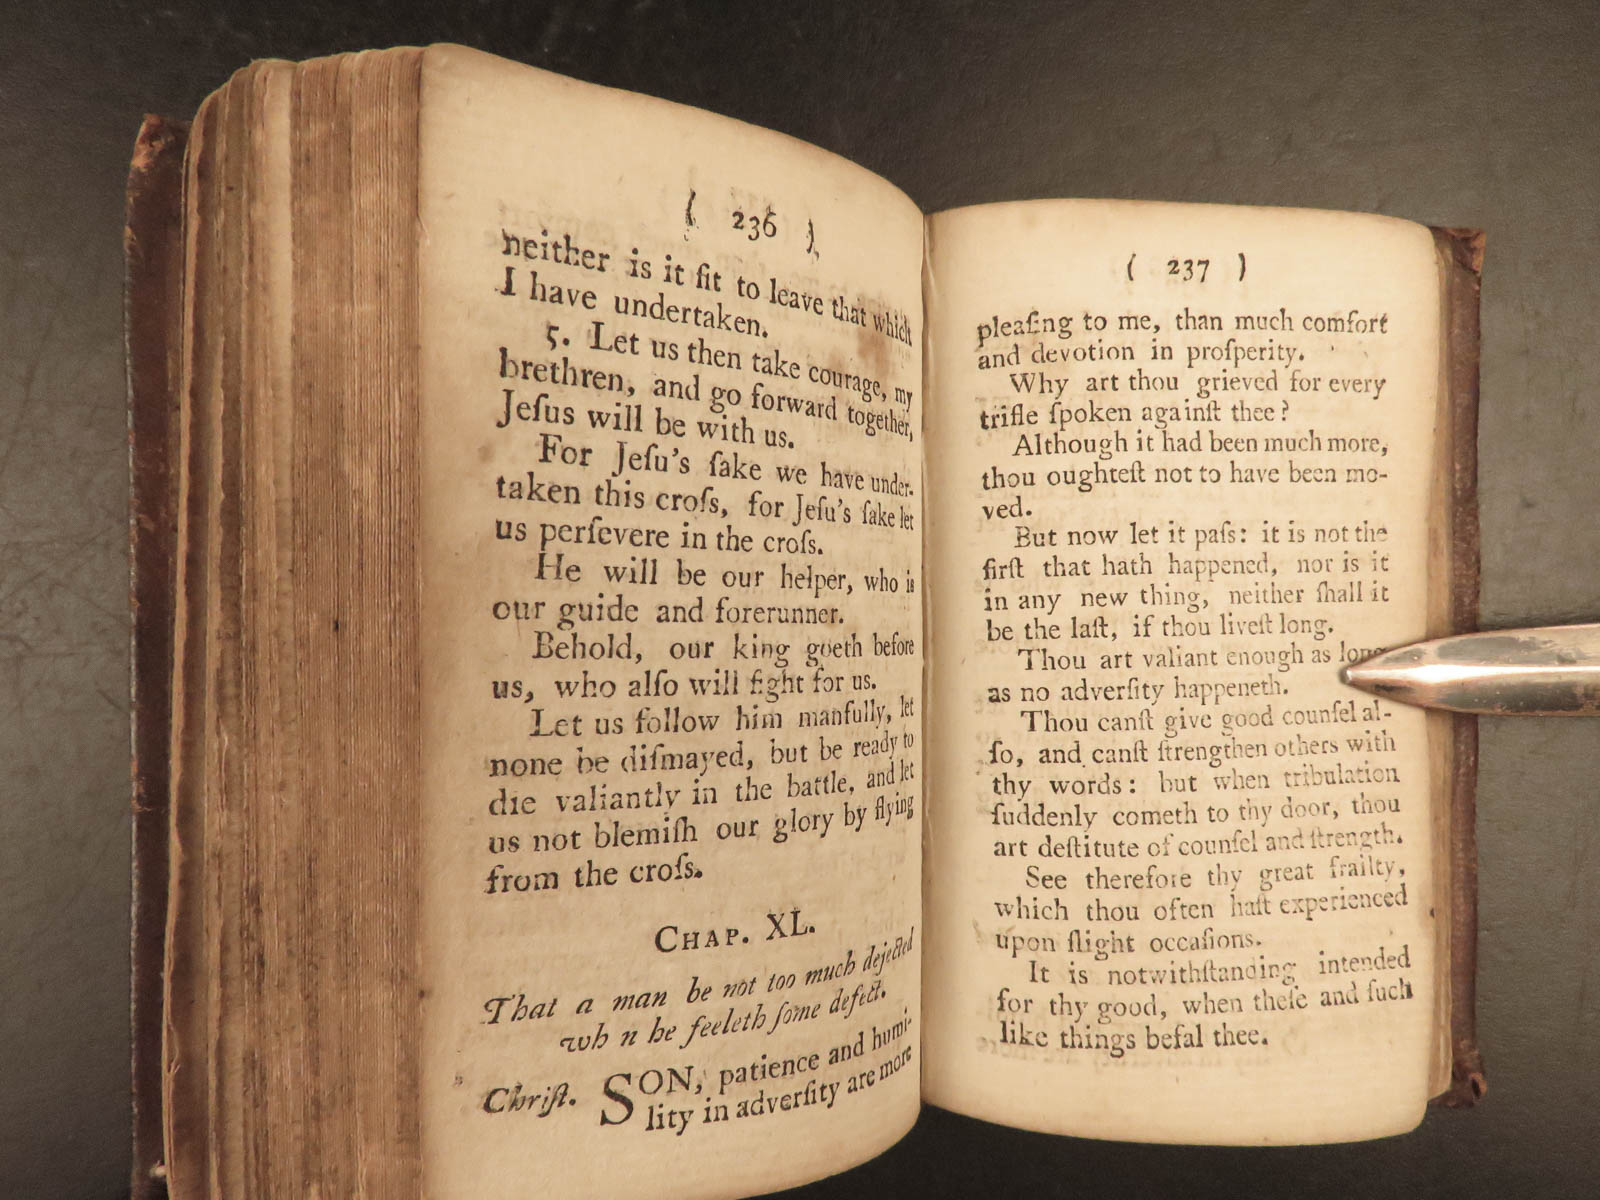 ( 236 )
neither is it fit to leave that which
I have undertaken.
5. Let us then take courage, my
brethren, and go forward together,
Jeſus will be with us.
For Jeſu's ſake we have under-
taken this croſs, for Jeſu's ſake let
us perſevere in the croſs.
He will be our helper, who is
our guide and forerunner.
Behold, our king goeth before
us, who alſo will fight for us.
Let us follow him manfully, let
none be diſmayed, but be ready to
die valiantly in the battle, and let
us not blemiſh our glory by flying
from the croſs.
CHAP. XL.
That a man be not too much dejected
wh n he feeleth ſome defect.
Chriſt. SON, patience and humi-
lity in adverſity are more
( 237 )
pleaſing to me, than much comfort
and devotion in proſperity.
Why art thou grieved for every
trifle ſpoken againſt thee?
Although it had been much more,
thou oughteſt not to have been mo-
ved.
But now let it paſs: it is not the
firſt that hath happened, nor is it
in any new thing, neither ſhall it
be the laſt, if thou liveſt long.
Thou art valiant enough as long
as no adverſity happeneth.
Thou canſt give good counſel al-
ſo, and canſt ſtrengthen others with
thy words: but when tribulation
ſuddenly cometh to thy door, thou
art deſtitute of counſel and ſtrength.
See therefore thy great frailty,
which thou often haſt experienced
upon ſlight occaſions.
It is notwithſtanding intended
for thy good, when theſe and ſuch
like things befal thee.